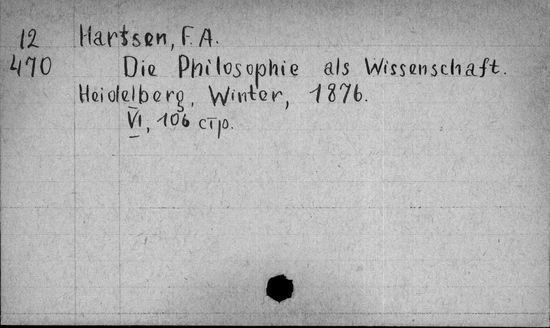 12 Hartsen, F. A.
470 Die Philosophie als Wissenschaft.
Heidelberg, Winter, 1876.
VI, 106 стр.